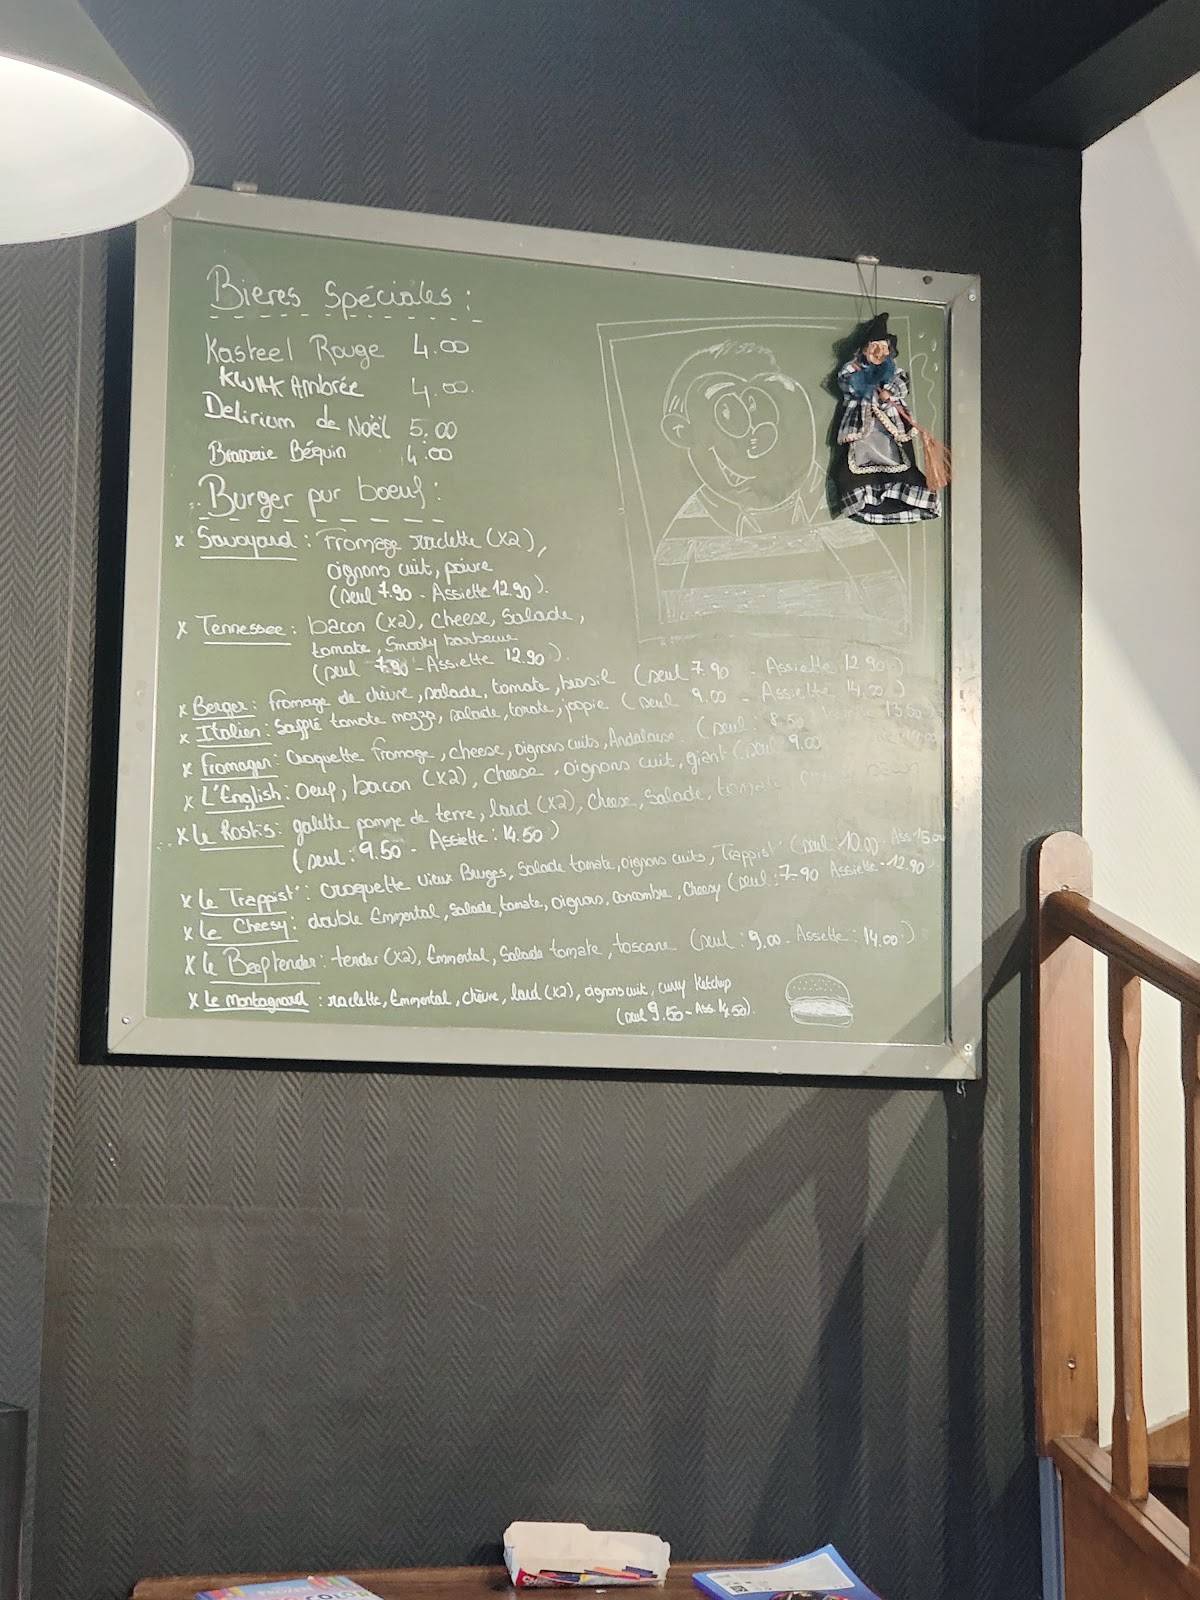 Bieres Spéciales :
Kasteel Rouge 4.00
KWAK Ambrée 4.00.
Delirium de Noël 5.00
Brasserie Béguin 4.00
Burger pur boeuf :
x Savoyard : Fromage raclette (x2),
oignons cuit, poivre
(seul 7.90 - Assiette 12.90).
x Tennessee : bacon (x2), cheese, salade,
tomate, Smooky barbecue
(seul 7.90 - Assiette 12.90).
x Berger : fromage de chèvre, salade, tomate, brasil (seul 7.90 - Assiette 12.90)
x Italien : Soufflé tomate mozza, salade, tomate, joopie (seul 9.00 - Assiette 14.00)
x Fromager : Croquette fromage, cheese, oignons cuits, Andalouse. (seul : 8.50 13.50)
x L'English : Oeuf, bacon (x2), cheese, oignons cuit, giant (seul 9.00
x Le Rostis : galette pomme de terre, lard (x2), cheese, salade, tomate,
(seul : 9.50 - Assiette : 14.50)
x Le Trappist' : Croquette vieux Bruges, salade tomate, oignons cuits, Trappist' (seul 10.00 Ass 15.00
x Le Cheesy : double Emmental, salade, tomate, oignons, concombre, cheesy (seul : 7.90 Assiette - 12.90)
x Le Beeftender : tender (x2), Emmental, salade tomate, toscane (seul : 9.00 - Assiette : 14.00)
x Le Montagnard : raclette, Emmental, chèvre, lard (x2), oignons cuit, curry Ketchup
(seul 9.50 - Ass. 14.50).